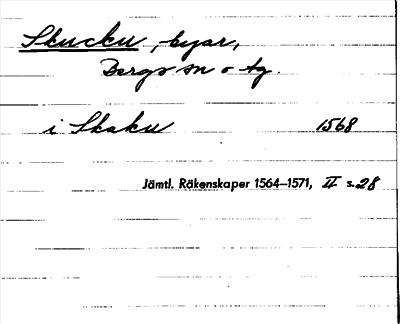 Skucku, byar,
Bergs sn o tg.
i Skaku 1568
Jämtl. Räkenskaper 1564–1571, II s. 28